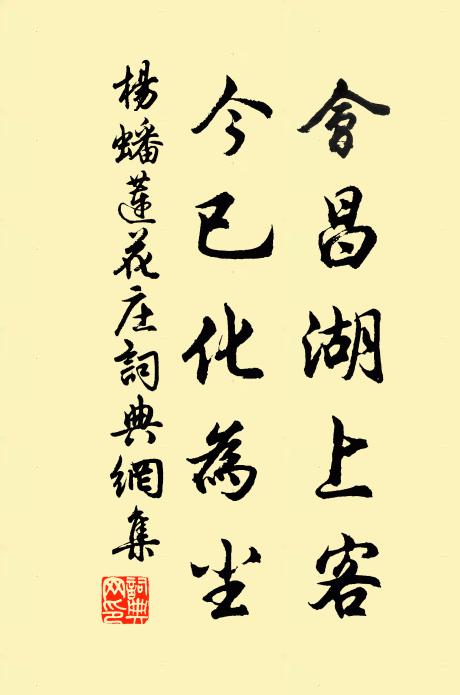 會昌湖上客
今已化為尘
楊蟠蓮花庄詞典網集
詞典網印